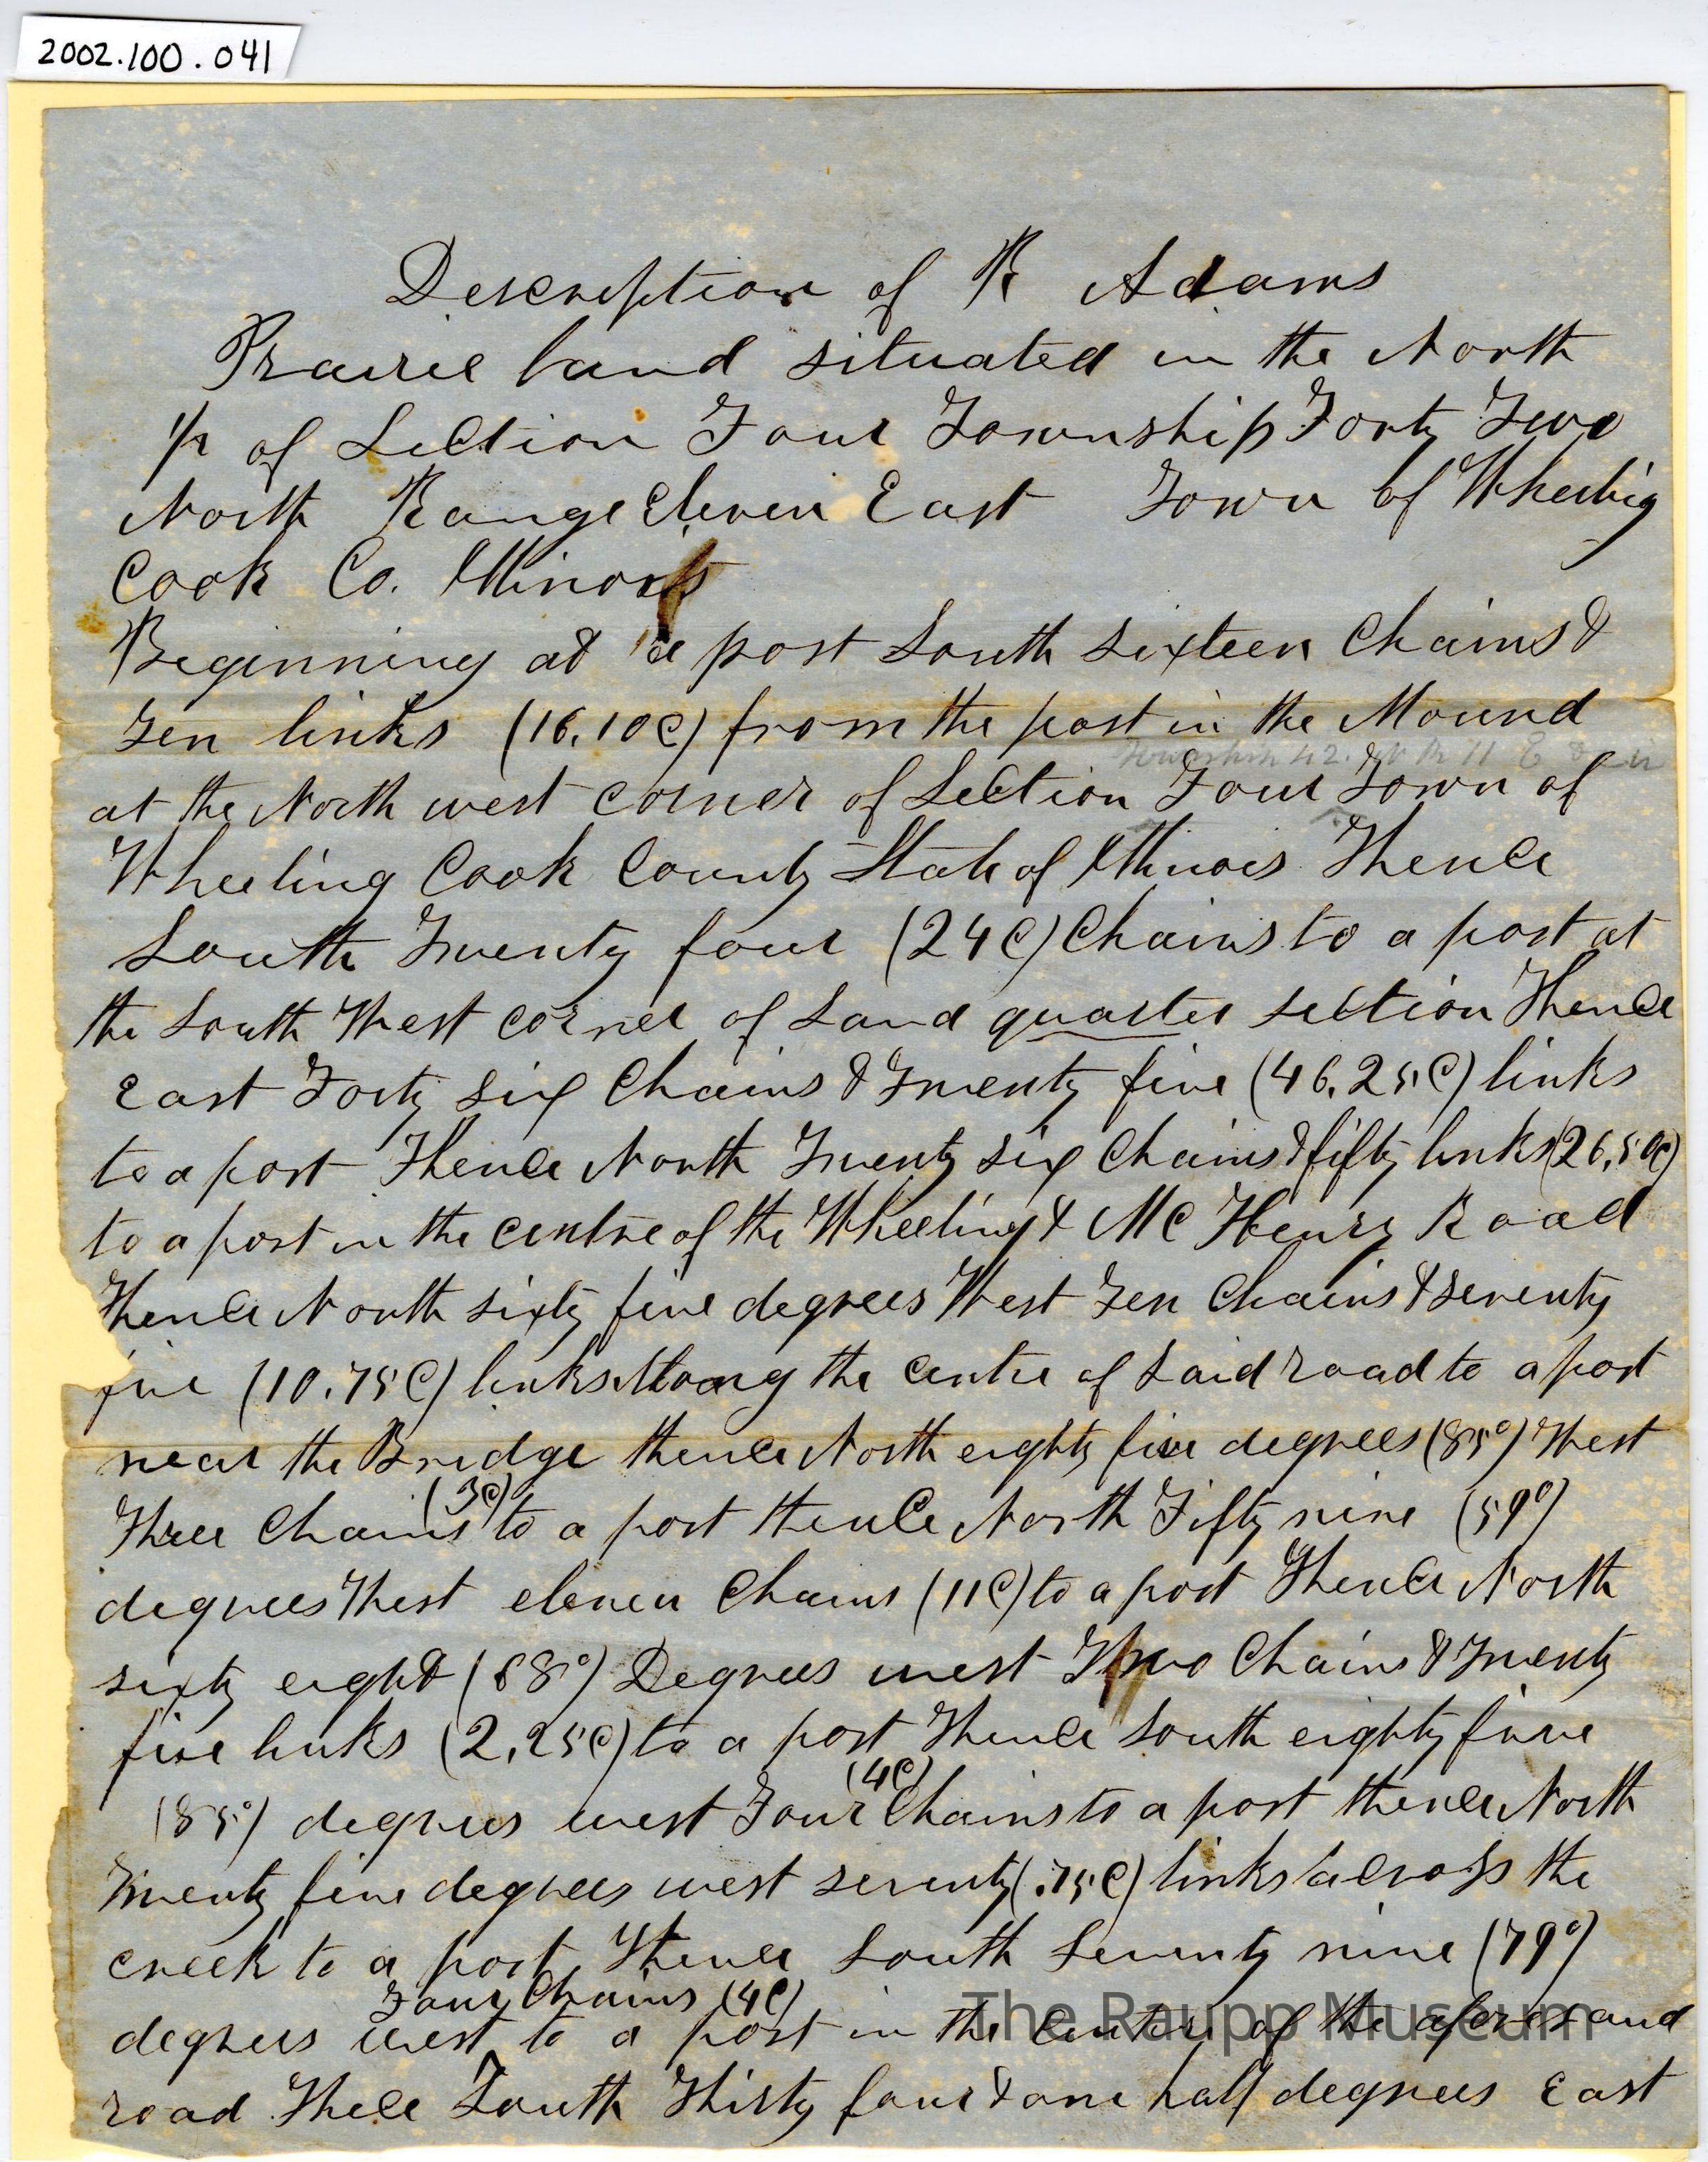 2002.100.041
Description of R Adams
Prairie land situated in the North
1/2 of Section Four Township Forty Two
North Range Eleven East Town of Wheeling
Cook Co. Illinois
Beginning at a post South sixteen Chains &
Ten links (16.10C) from the post in the Mound
Township 42. N R 11 E
at the North west corner of Section Four Town of
Wheeling Cook County State of Illinois Thence
South Twenty four (24C) Chains to a post at
the South West corner of Sand quarter section Thence
East Forty six Chains & Twenty five (46.25C) links
to a post Thence North Twenty six Chains & fifty links (26,50C)
to a post in the centre of the Wheeling & McHenry Road
Thence North sixty five degrees West Ten Chains & seventy
five (10.75C) links Along the centre of said road to a post
near the Bridge thence North eighty five degrees (85°) West
(3C)
Three Chains to a post thence North Fifty nine (59°)
degrees West eleven Chains (11C) to a post Thence North
sixty eight (68°) Degrees west Two Chains & Twenty
five links (2,25C) to a post Thence South eighty five
(4C)
(85°) degrees west Four Chains to a post thence North
Twenty five degrees west seventy (.75C) links across the
creek to a post Thence South Seventy nine (79°)
Four Chains (4C)
degrees west to a post in the centre of the aforesand
road Thece South Thirty four & one half degrees East
The Raupp Museum